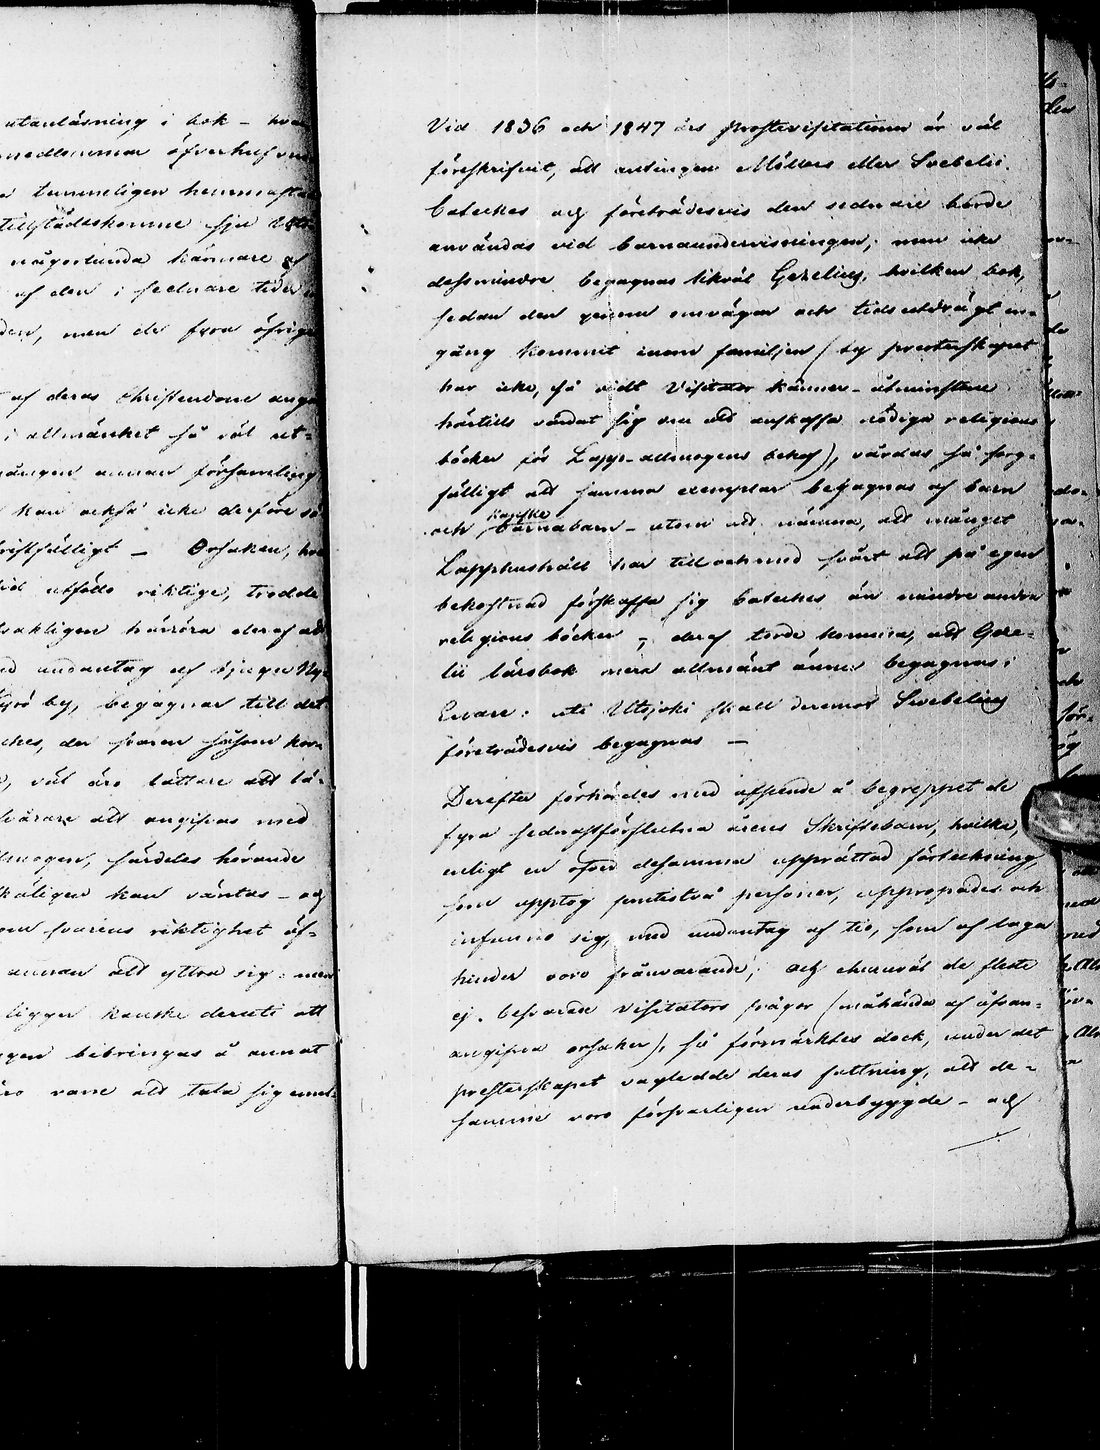 utanläsning i bok - hva
medlemmar öfverhufvu
tummeligen hemmasta
tillstädeskomne sju
någorlunda kännare af
af den i sednare tider
den, men de fyra öfriga
af deras Christendom ang
i allmänhet så väl ut-
mången annan församling
kan också icke derföre
Orsaken, hva
utfälls riktige, trodde
sakligen härröra deraf att
med undantag af
by, begagnar till det
ches, der svaren såsom kor-
väl äro lättare att lä-
svårare att angifvas med
lmogen, särdeles hörande
skäligen kan väntas - och
om svarens riktighet öf-
annan att yttra sig: men
ligger kanske deruti att
gen bibringas å annat
vane att tala sig emel-
Vid 1836 och 1847 års Prostevisitationer är väl
föreskrifvit, att antingen Möllers eller Svebelii
Cateches och företrädesvis den sednare borde
användas vid barnaundervisningen; men icke
dessmindre begagnas likväl Gezelius, hvilken bok,
sedan den genom omvägar och tidsutdrägt en-
gång kommit inom familjen (ty presterskapet
har icke, så vidt Visitator känner - åtminstone
härtills vårdat sig om att anskaffa nödiga religions
böcker för Lapp-allmogens behof), vårdas så sorg-
fälligt att samma exemplar begagnas af barn
och kanske barnabarn - utom att nämna, att månget
Lapphushåll har till och med svårt att på egen
bekostnad förskaffa sig Cateches än mindre andra
religions böcker -; deraf torde komma, att Geze-
lii lärobok mera allmänt ännu begagnas i
Enare: uti Utsjoki skall deremot Swebelius
företrädesvis begagnas -
Derefter förhördes med afseende å begreppet de
fyra sednastförflutna årens Skriftebarn, hvilka,
enligt en öfver desamma upprättad förteckning,
som upptog femtiotvå personer, uppropades och
infunno sig, med undantag af tio, som af laga
hinder voro frånvarande; och ehuruväl de fleste
ej besvarade Visitators frågor (måhända af ofvan-
angifna orsaker), så förmärktes dock, under det
presterskapet vägledde deras fattning, att de-
samme voro försvarligen underbyggde - och